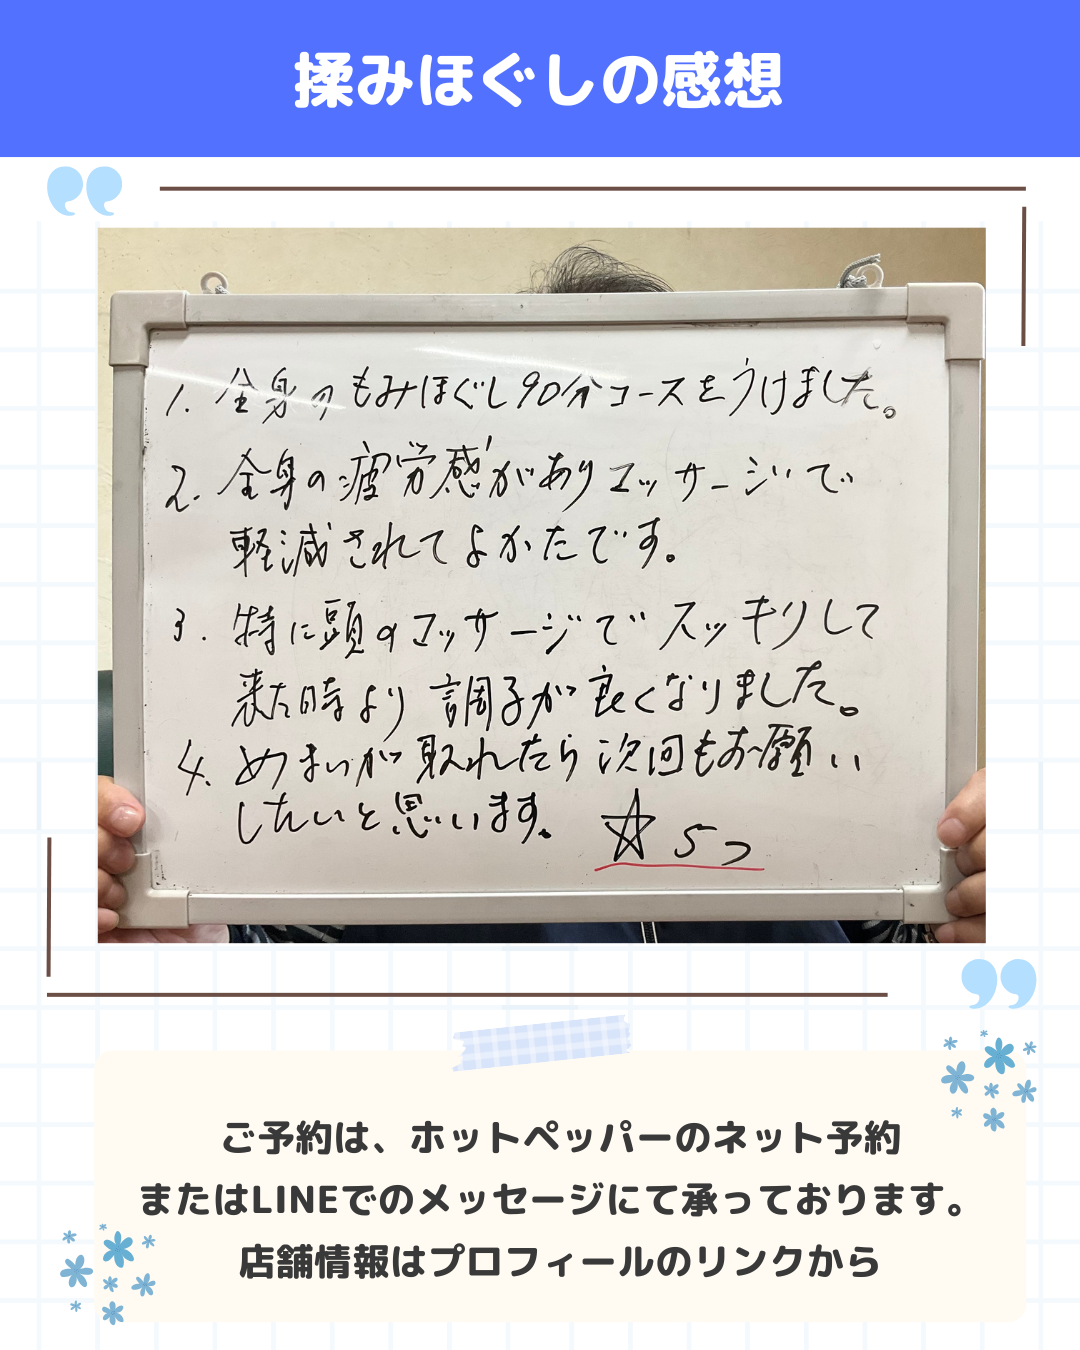 揉みほぐしの感想
1. 全身のもみほぐし90分コースをうけました。
2. 全身の疲労感がありマッサージで
軽減されてよかたです。
3. 特に頭のマッサージでスッキリして
来た時より調子が良くなりました。
4. めまいが取れたら次回もお願い
したいと思います。 ☆5つ
ご予約は、ホットペッパーのネット予約
またはLINEでのメッセージにて承っております。
店舗情報はプロフィールのリンクから